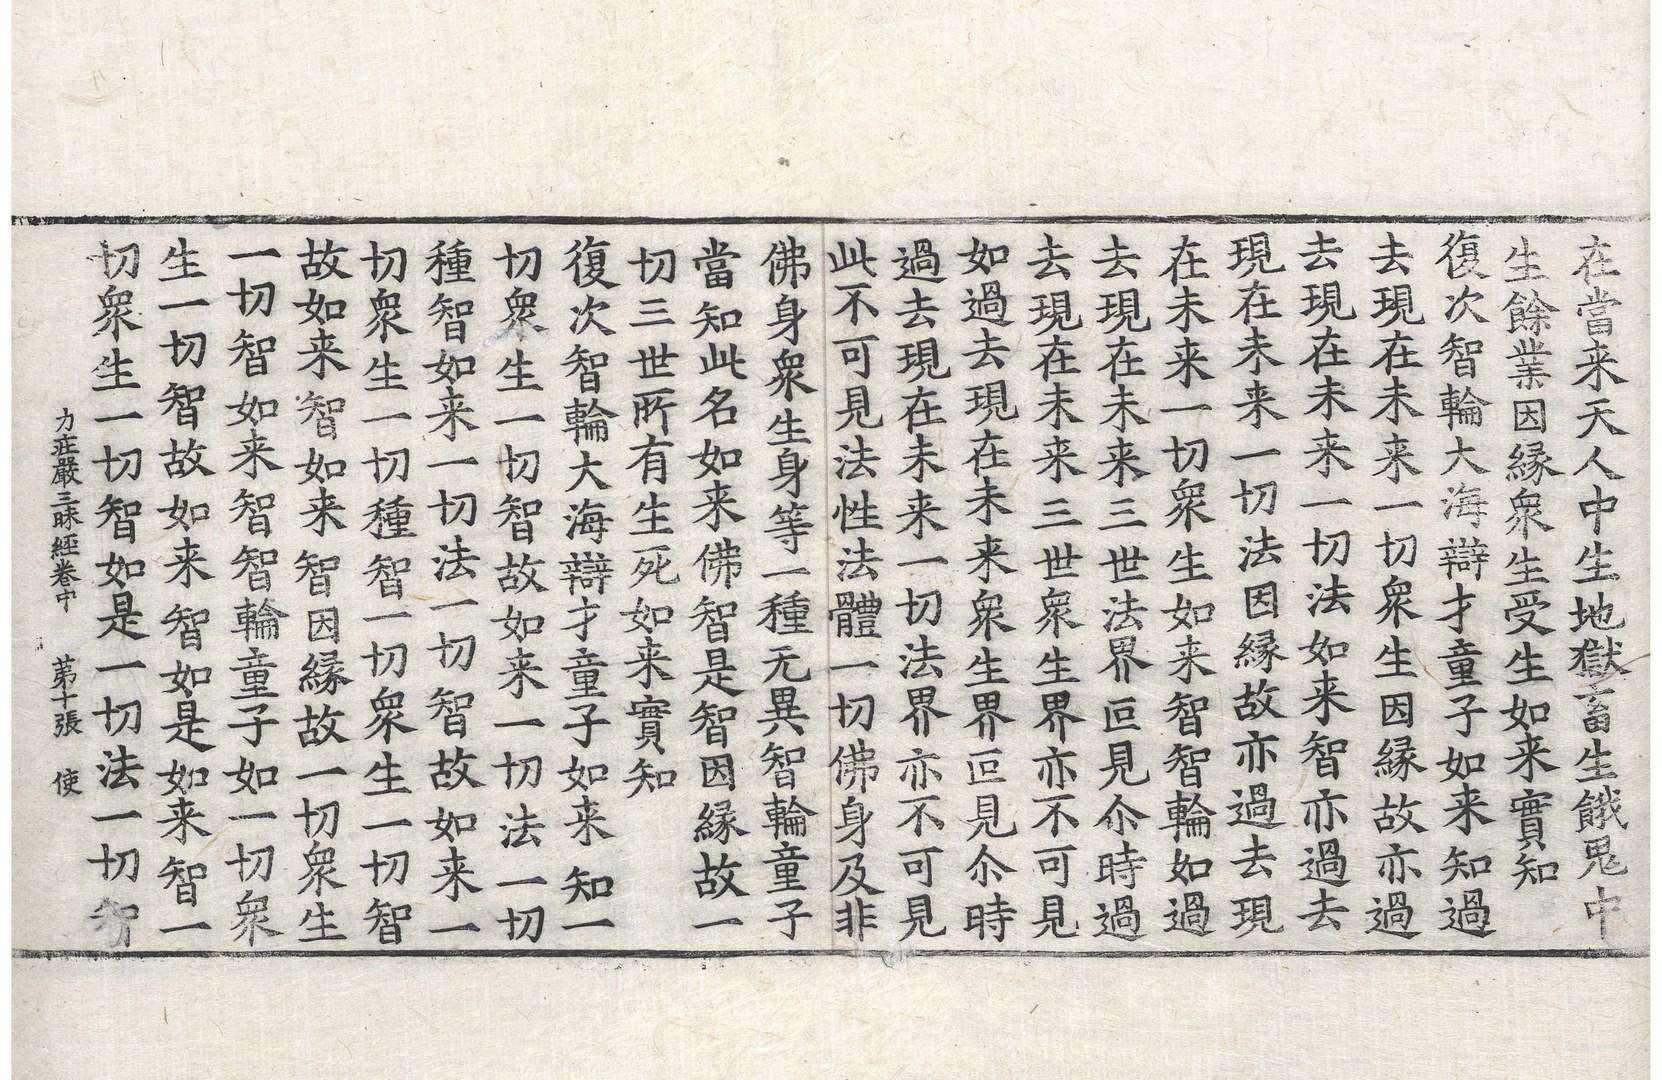 在當来天人中生地獄畜生餓鬼中
生餘業因緣衆生受生如来實知
復次智輪大海辯才童子如来知過
去現在未来一切衆生因緣故亦過
去現在未来一切法如来智亦過去
現在未来一切法因緣故亦過去現
在未来一切衆生如来智智輪如過
去現在未来三世法界叵見尒時過
去現在未来三世衆生界亦不可見
如過去現在未来衆生界叵見尒時
過去現在未来一切法界亦不可見
此不可見法性法體一切佛身及非
佛身衆生身等一種无異智輪童子
當知此名如来佛智是智因緣故一
切三世所有生死如来實知
復次智輪大海辯才童子如来知一
切衆生一切智故如来一切法一切
種智如来一切法一切智故如来一
切衆生一切種智一切衆生一切智
故如来智如来智因緣故一切衆生
一切智如来智智輪童子如一切衆
生一切智故如来智如是如来智一
切衆生一切智如是一切法一切智
力莊嚴三昧經卷中 苐十張 使